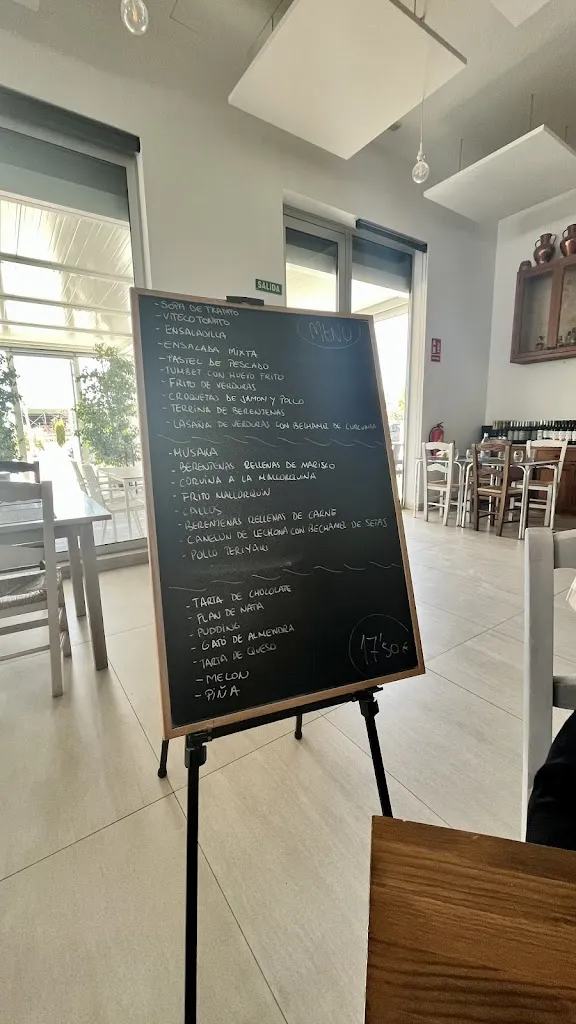 SALIDA
MENU
- SOPA DE TRAMPÓ
- VITELO TONATO
- ENSALADILLA
- ENSALADA MIXTA
- PASTEL DE PESCADO
- TUMBET CON HUEVO FRITO
- FRITO DE VERDURAS
- CROQUETAS DE JAMON Y POLLO
- TERRINA DE BERENJENAS
- LASAÑA DE VERDURAS CON BECHAMEL DE CURCUMA
- MUSAKA
- BERENJENAS RELLENAS DE MARISCO
- CORVINA A LA MALLORQUINA
- FRITO MALLORQUIN
- CALLOS
- BERENJENAS RELLENAS DE CARNE
- CANELON DE LECHONA CON BECHAMEL DE SETAS
- POLLO TERIYAKI
- TARTA DE CHOCOLATE
- FLAN DE NATA
- PUDDING
- GATÓ DE ALMENDRA
- TARTA DE QUESO
- MELON
- PIÑA
17'50€